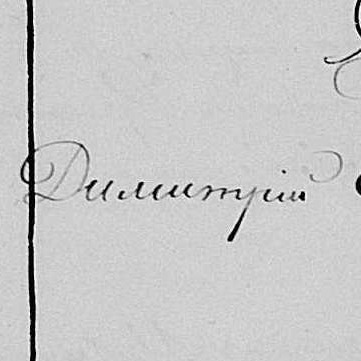 Димитрій